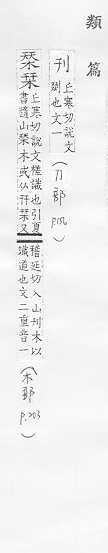 類篇
刊
丘寒切說文
剟也文一
(刀部
栞栞
丘寒切說文槎識也引夏
書隨山栞木或从幵栞又
稽延切入山刊木以
識道也文二重音一
(木部 p.203)